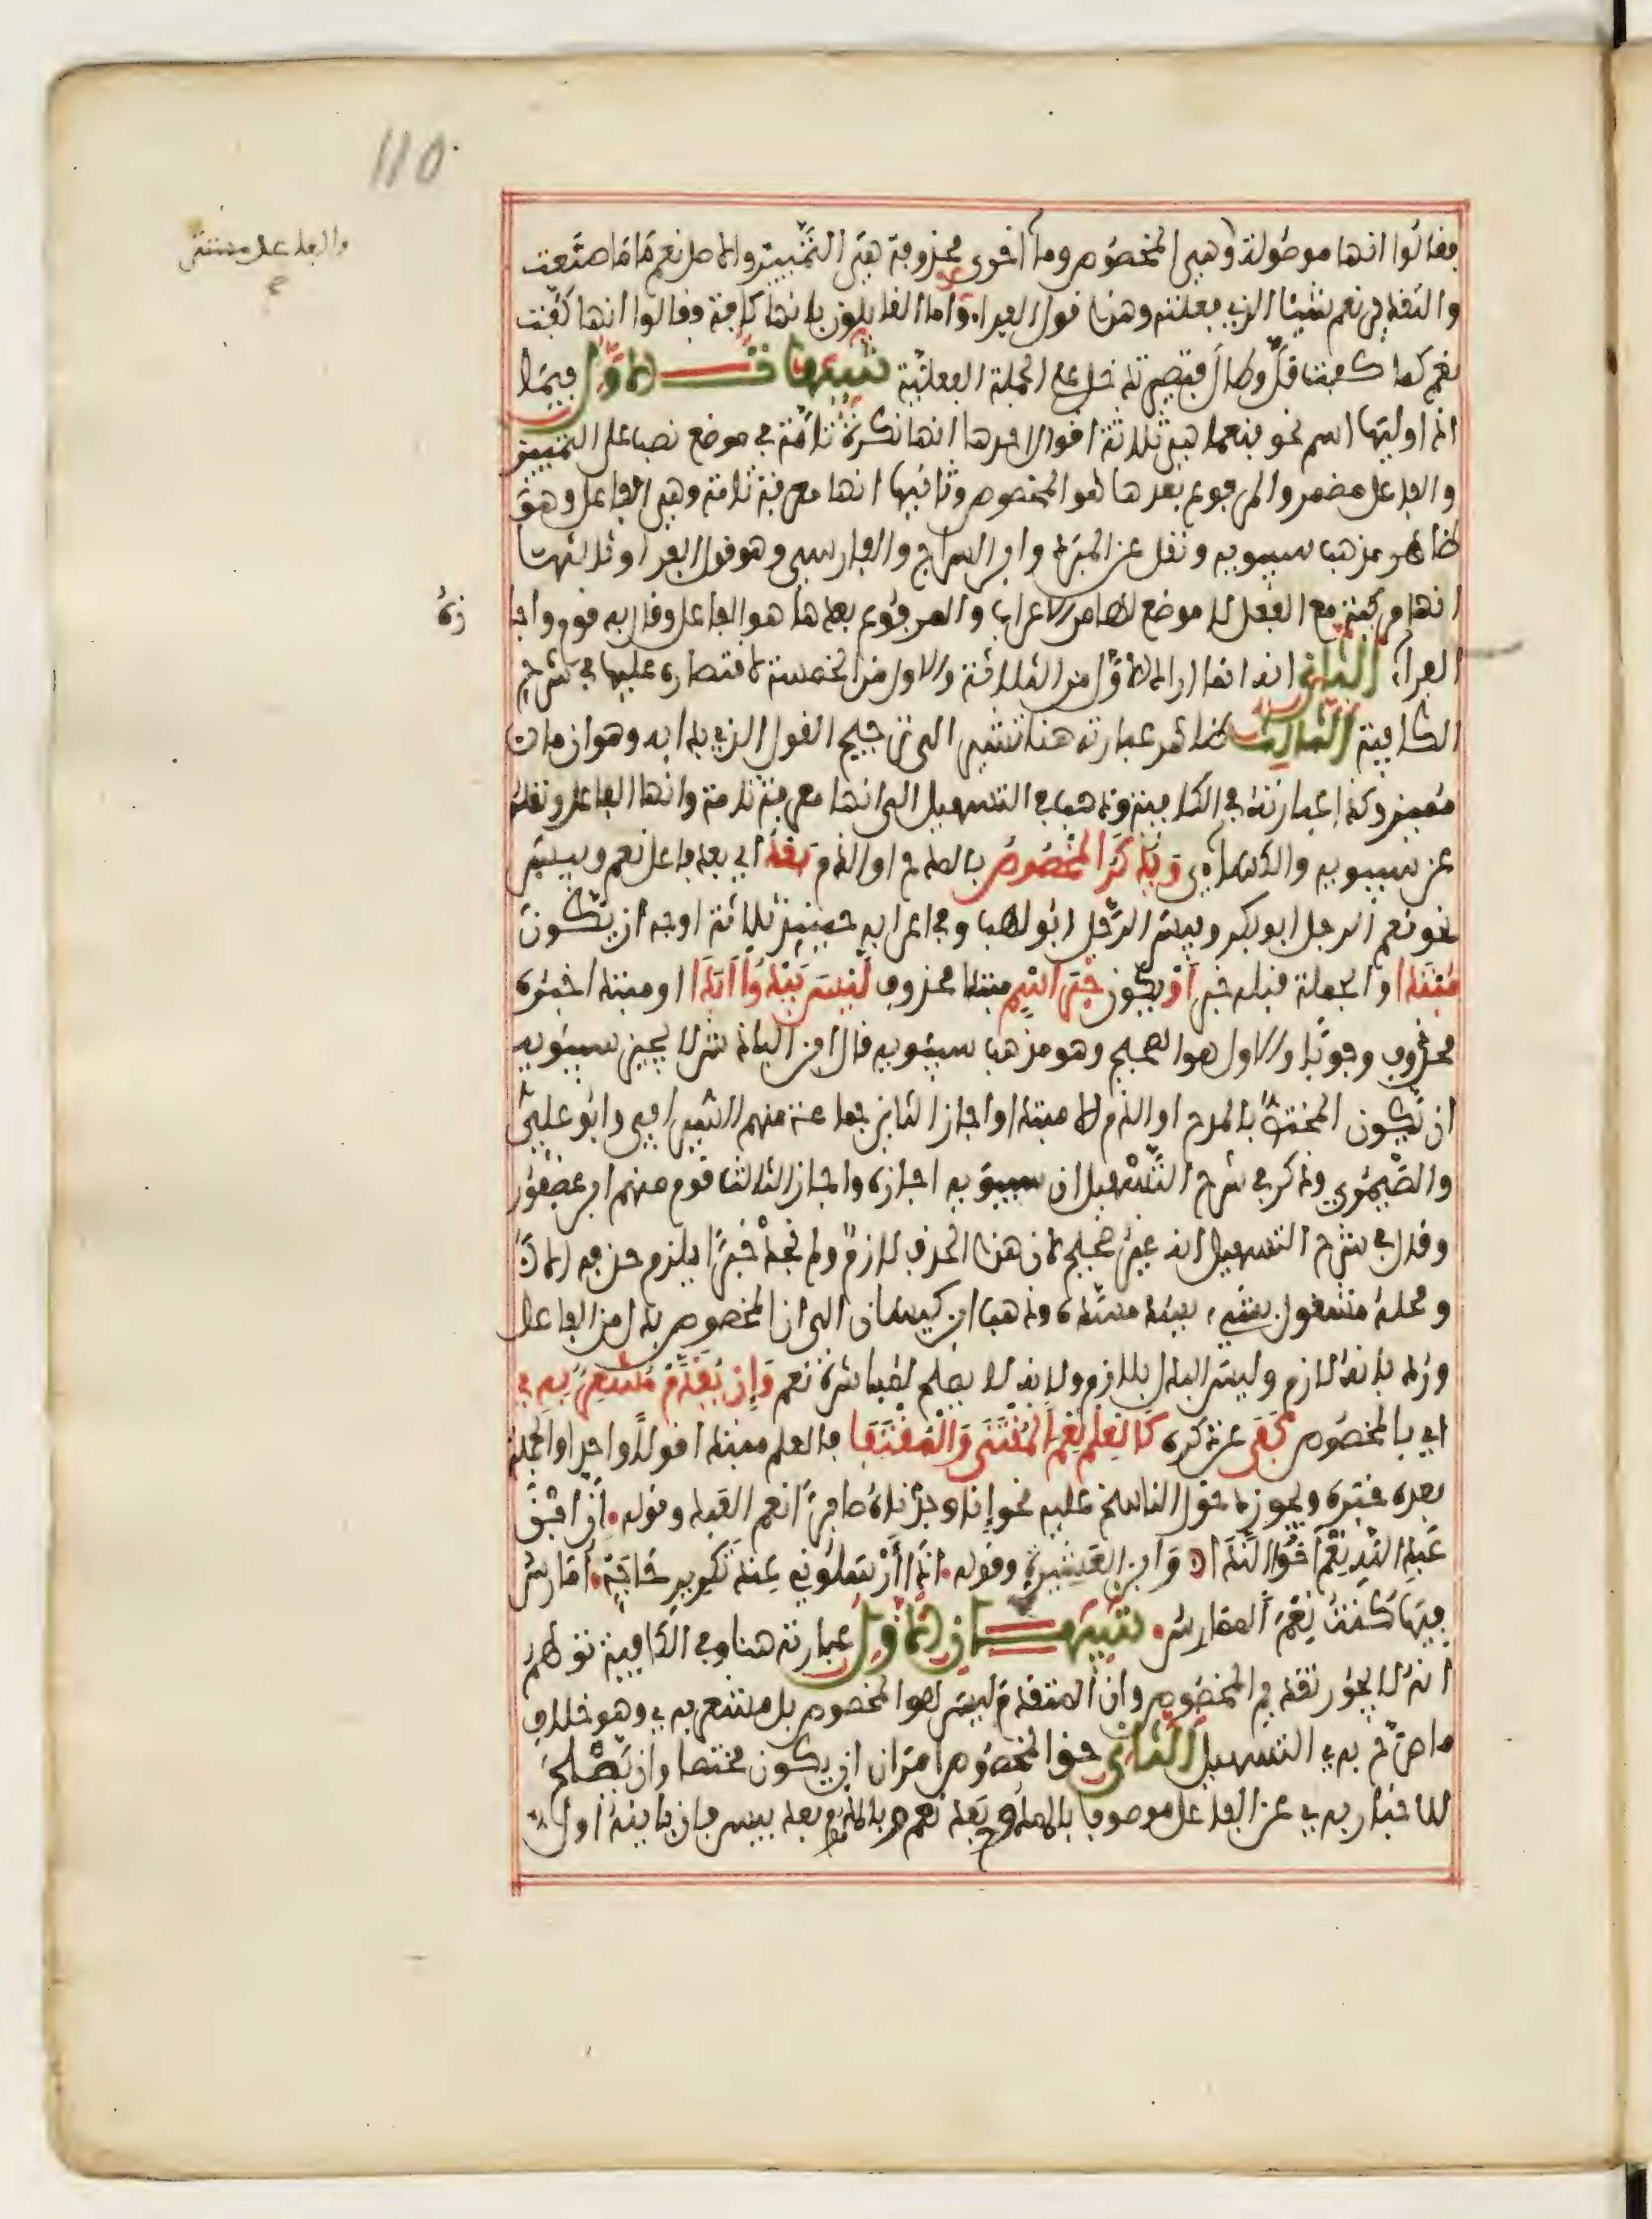 110
والفاعل مستتر
فقالوا انها موصولة وهي المخصوص وما اخرى محذوفة هي التمييز والاصل نعم ما ما صنعت
والتقدير نعم شيئا الذي فعلته وهذا قول الفراء واما القايلون بانها كافة فقالوا انها كفت
نعم كما كفت قل وطال فتصير تدخل على الجملة الفعلية تنبيهات الاول في ما
اذا وليها اسم نحو فنعما هي ثلاثة اقوال احدها انها نكرة تامة في موضع نصب على التمييز
والفاعل مضمر والمرفوع بعدها هو المخصوص وثانيها انها معرفة تامة وهي الفاعل وهو
ظاهر مذهب سيبويه ونقل عن المبرد وابن السراج والفارسي وهو قول الفراء وثالثها
انها مركبة مع الفعل لا موضع لها من الاعراب والمرفوع بعدها هو الفاعل وقال به قوم واجا
زه
الفراء الثاني انه اراد الاول من الثلاثة والاول من الخمسة لاقتصاره عليها في شرح
الكافية الثالث ظاهر عبارته هنا تشير الى ترجيح القول الذي بدا به وهو ان ما
مميز وكذا عبارته في الكافية وذهب في التسهيل الى انها معرفة تامة وانها الفاعل ونقله
عن سيبويه والكساءي ويذكر المخصوص بالمدح او الذم بعد اي بعد فاعل نعم وبيس
نحو نعم الرجل ابو بكر وبيس الرجل ابو لهب وفي اعرابه حينيذ ثلاثة اوجه ان يكون
مبتدا او الجملة قبله خبر او يكون خبر اسم مبتدا محذوف ليس يبدو ابدا او مبتدا خبره
محذوف وجوبا والاول هو الصحيح وهو مذهب سيبويه قال ابن الباذش لا يجيز سيبويه
ان يكون المختص بالمدح او الذم الا مبتدا واجاز الثاني جماعة منهم السيرافي وابو علي
والصيمري وذكر في شرح التسهيل ان سيبويه اجازه واجاز الثالث قوم منهم ابن عصفور
وقال في شرح التسهيل انه غير صحيح لان هذا الحذف لازم ولم نجد خبرا يلزم حذفه الا
ومحله مشغول بشيء يسد مسده وذهب ابن كيسان الى ان المخصوص بدل من الفاعل
ورد بانه لازم وليس البدل بلازم ولانه لا يصلح لمباشرة نعم وان يقدم مشعر به
اي بالمخصوص كفى عن ذكره كالعلم نعم المقتنى والمقتفى فالعلم مبتدا قولا واحدا والجملة
بعده خبره ويجوز دخول الناسخ عليه نحو انا وجدناه صابرا نعم العبد وقوله ان ابن
عبد الله نعم اخو الندا وابن العشيرة وقوله اذا ارسلوني عند تعذير حاجة امارس
فيها كنت نعم الممارس تنبيهان الاول عبارته هنا وفي الكافية توهم
انه لا يجوز تقديم المخصوص وان المتقدم ليس هو المخصوص بل مشعر به وهو خلاف
ما صرح به في التسهيل الثاني حق المخصوص امران ان يكون مختصا وان يصلح
للاخبار به عن الفاعل موصوفا بالممدوح بعد نعم وبالمذموم بعد بيس فان باينه اول